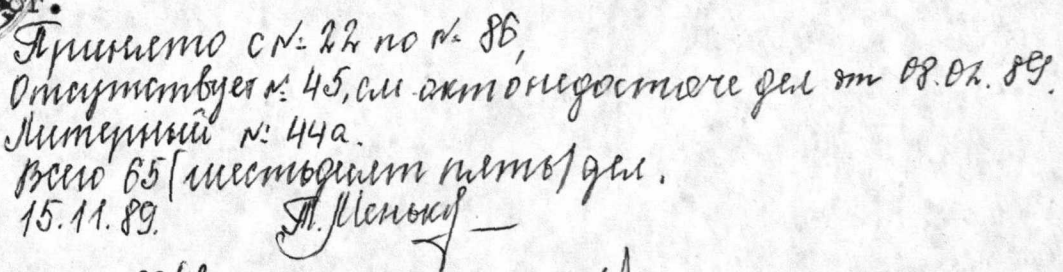 Принято с № 22 по № 86,
Отсутствует № 45, см. акт о недостаче дел от 08.02.89.
Литерный № 44а.
Всего 65 (шестьдесят пять) дел.
15.11.89.